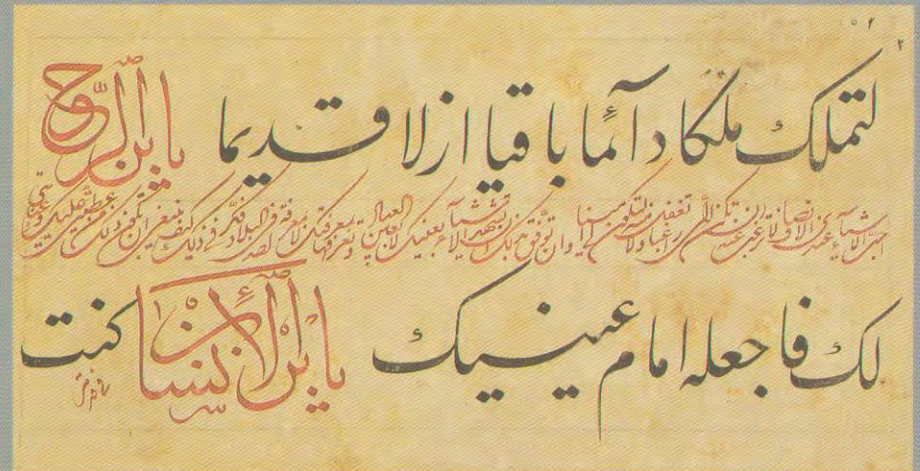 ٢
لتملك ملكا دآئما باقيا ازلا قديما يابن الرّوح
احبّ الاشيآء عندي الانصاف لا ترغب عنه ان تكن اليّ راغبا ولا تغفل منه لتكون لي امينا وانت توفّق بذلك ان تشاهد الاشيآء بعينك لا بعين العباد وتعرفها بمعرفتك لا بمعرفة احد في البلاد فكّر في ذلك كيف ينبغي ان يكون ذلك من عطيّتي عليك وعنايتي
لك فاجعله امام عينيك يابن الأنسان كنت